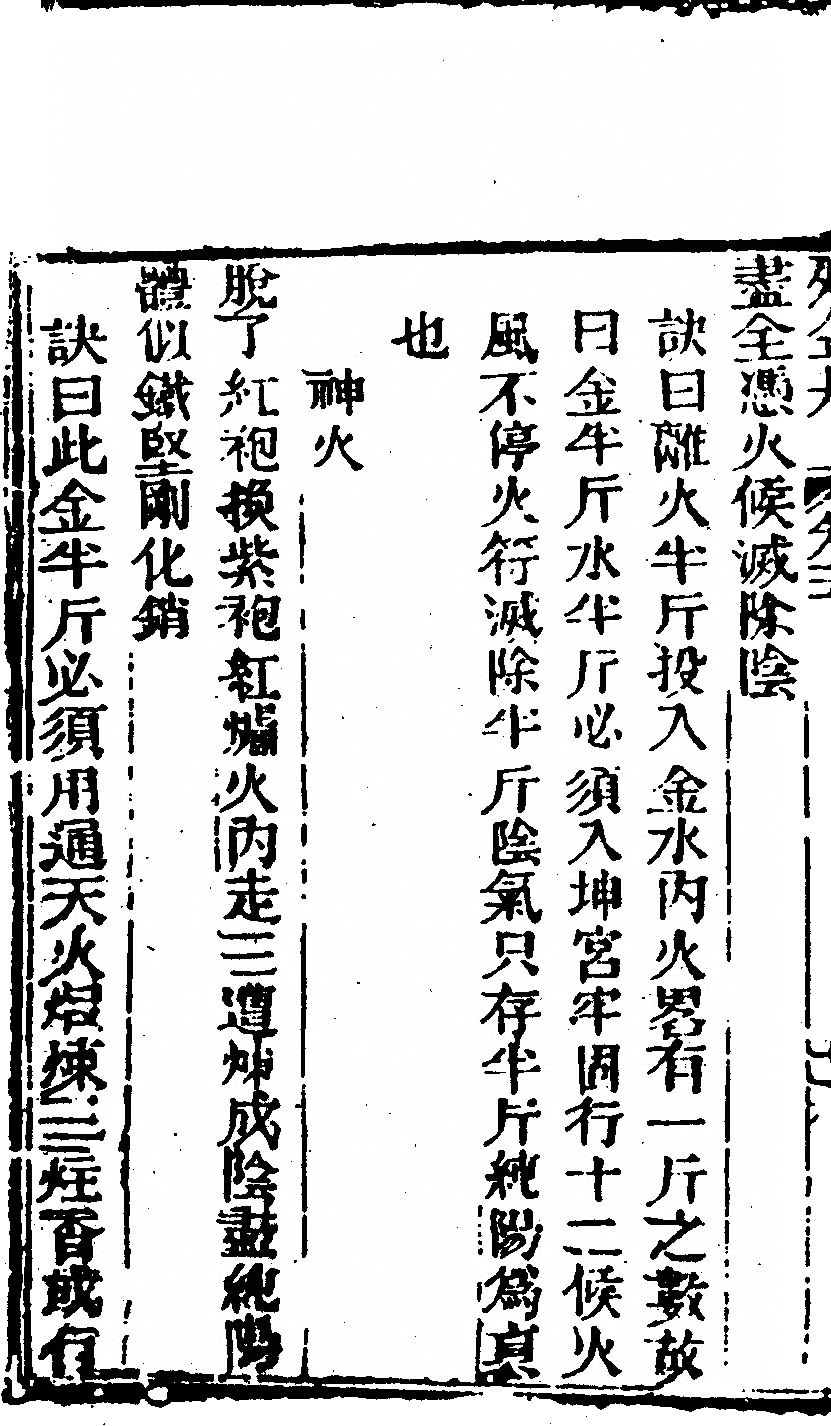 盡全憑火候滅除陰
訣曰離火半斤投入金水内火畧有一斤之數故
曰金半斤水半斤必須入坤宮牢固行十二候火
風不停火符滅除半斤陰氣只存半斤純陽爲真
也
神火
脫了紅袍換紫袍紅爐火内走三遭煉成陰盡純陽
體似鐵堅剛化銷
訣曰此金半斤必須用通天火煅煉三炷香或有